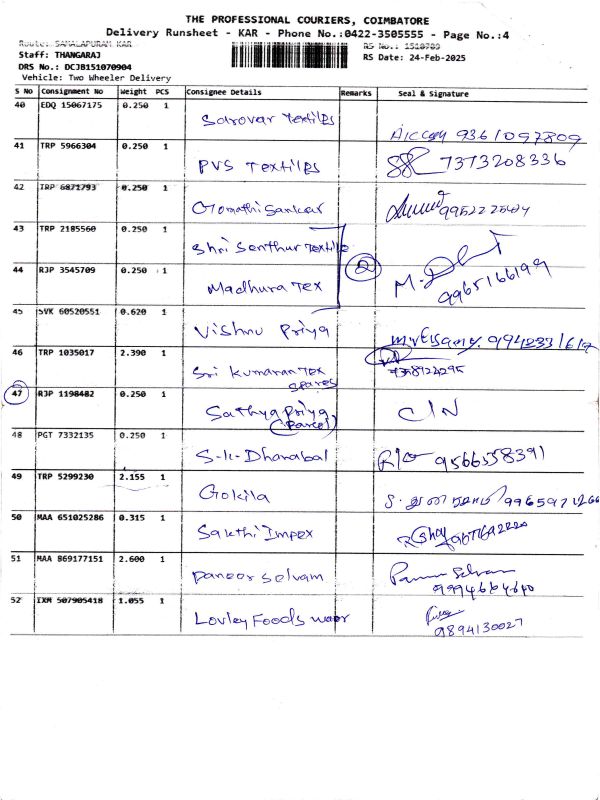 THE PROFESSIONAL COURIERS, COIMBATORE
Delivery Runsheet - KAR - Phone No.:0422-3505555 - Page No.:4
Route: SAMALAPURAM KAR
RS No.: 1510709
Staff: THANGARAJ
RS Date: 24-Feb-2025
DRS No.: DCJB151070904
Vehicle: Two Wheeler Delivery
S No Consignment No Weight PCS Consignee Details Remarks Seal & Signature
40 EDQ 15067175 0.250 1 Sarovar Textiles 9361097809
41 TRP 5966304 0.250 1 PVS Textiles 7373208336
42 TRP 6871793 0.250 1 Gomathi Sankar
43 TRP 2185560 0.250 1 Shri Senthur Textile
44 RJP 3545709 0.250 1 Madhura Tex 2 9965166199
45 SVK 60520551 0.620 1 Vishnu Priya
46 TRP 1035017 2.390 1 Sri Kumaran Tex Spares
47 RJP 1198482 0.250 1 Sathya Priya (Parcel) C/N
48 PGT 7332135 0.250 1 S-K-Dhanabal 9566558391
49 TRP 5299230 2.155 1 Gokila
50 MAA 651025286 0.315 1 Sakthi Impex
51 MAA 869177151 2.600 1 Paneer Selvam
52 IXM 507905418 1.055 1 Lovley Foods 9894130027